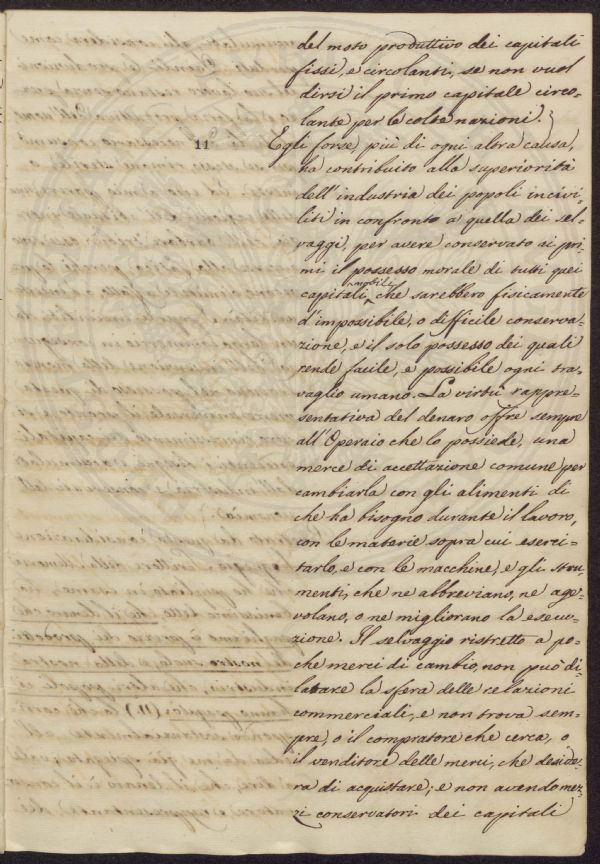 del moto produttivo dei capitali
fissi, e circolanti, se non vuol
dirsi il primo capitale circo-
lante per le colte nazioni.
11 Egli forse, più di ogni altra causa,
ha contribuito alla superiorità
dell'industria dei popoli incivi-
liti in confronto a quella dei sel-
vaggi, per avere conservato ai pri-
mi il possesso morale di tutti quei
capitali mobili, che sarebbero fisicamente
d'impossibile, o difficile conserva-
zione, e il solo possesso dei quali
rende facile, e possibile ogni tra-
vaglio umano. La virtù rappre-
sentativa del denaro offre sempre
all'Operaio che lo possiede, una
merce di accettazione comune per
cambiarla con gli alimenti di
che ha bisogno durante il lavoro,
con le materie sopra cui eserci-
tarlo, e con le macchine, e gli stru-
menti, che ne abbreviano, ne age-
volano, o ne migliorano la esecu-
zione. Il selvaggio ristretto a po-
che merci di cambio, non può di-
latare la sfera delle relazioni
commerciali, e non trova sem-
pre, o il compratore che cerca, o
il venditore delle merci, che deside-
ra di acquistare; e non avendo mez-
zi conservatori dei capitali